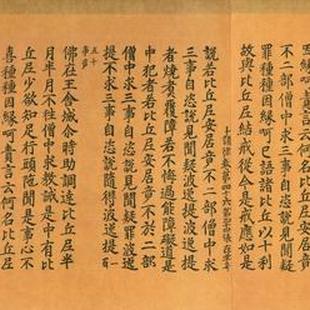 緣呵責言云何名比丘尼安居竟
不二部僧中求三事自恣說見聞疑
罪種種因緣呵已語諸比丘以十利
故與比丘尼結戒從今是戒應如是
十誦律卷第四十六
說若比丘尼安居竟不二部僧中求
三事自恣說見聞疑波逸提波逸提
者燒煮覆障若不悔過能障礙道是
中犯者若比丘尼安居竟不於二部
僧中求三事自恣說見聞疑罪波逸
提不求三事自恣說隨得波逸提
五十
事竟
佛在王舍城尒時助調達比丘尼半
月半月不往僧中求教誡是中有比
丘尼少欲知足行頭陁聞是事心不
喜種種因緣呵責言云何名比丘尼